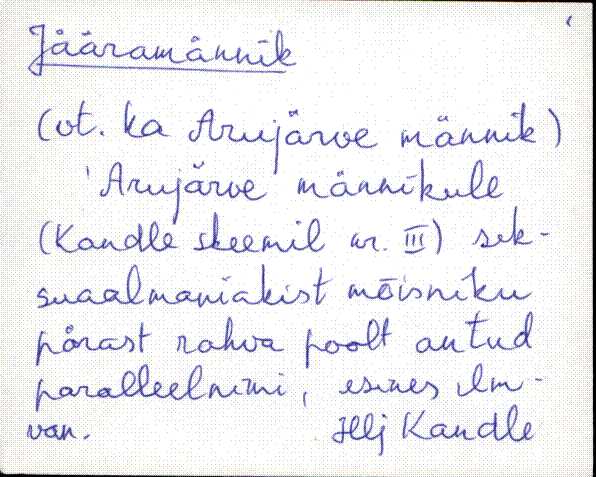 Jääramännik
(vt. ka Arujärve männik)
'Arujärve männikule
(Kandle skeemil nr. III) sek-
suaalmaniakist mõisniku
pärast rahva poolt antud
paralleelnimi, esines ilm-
van. Hlj Kandle